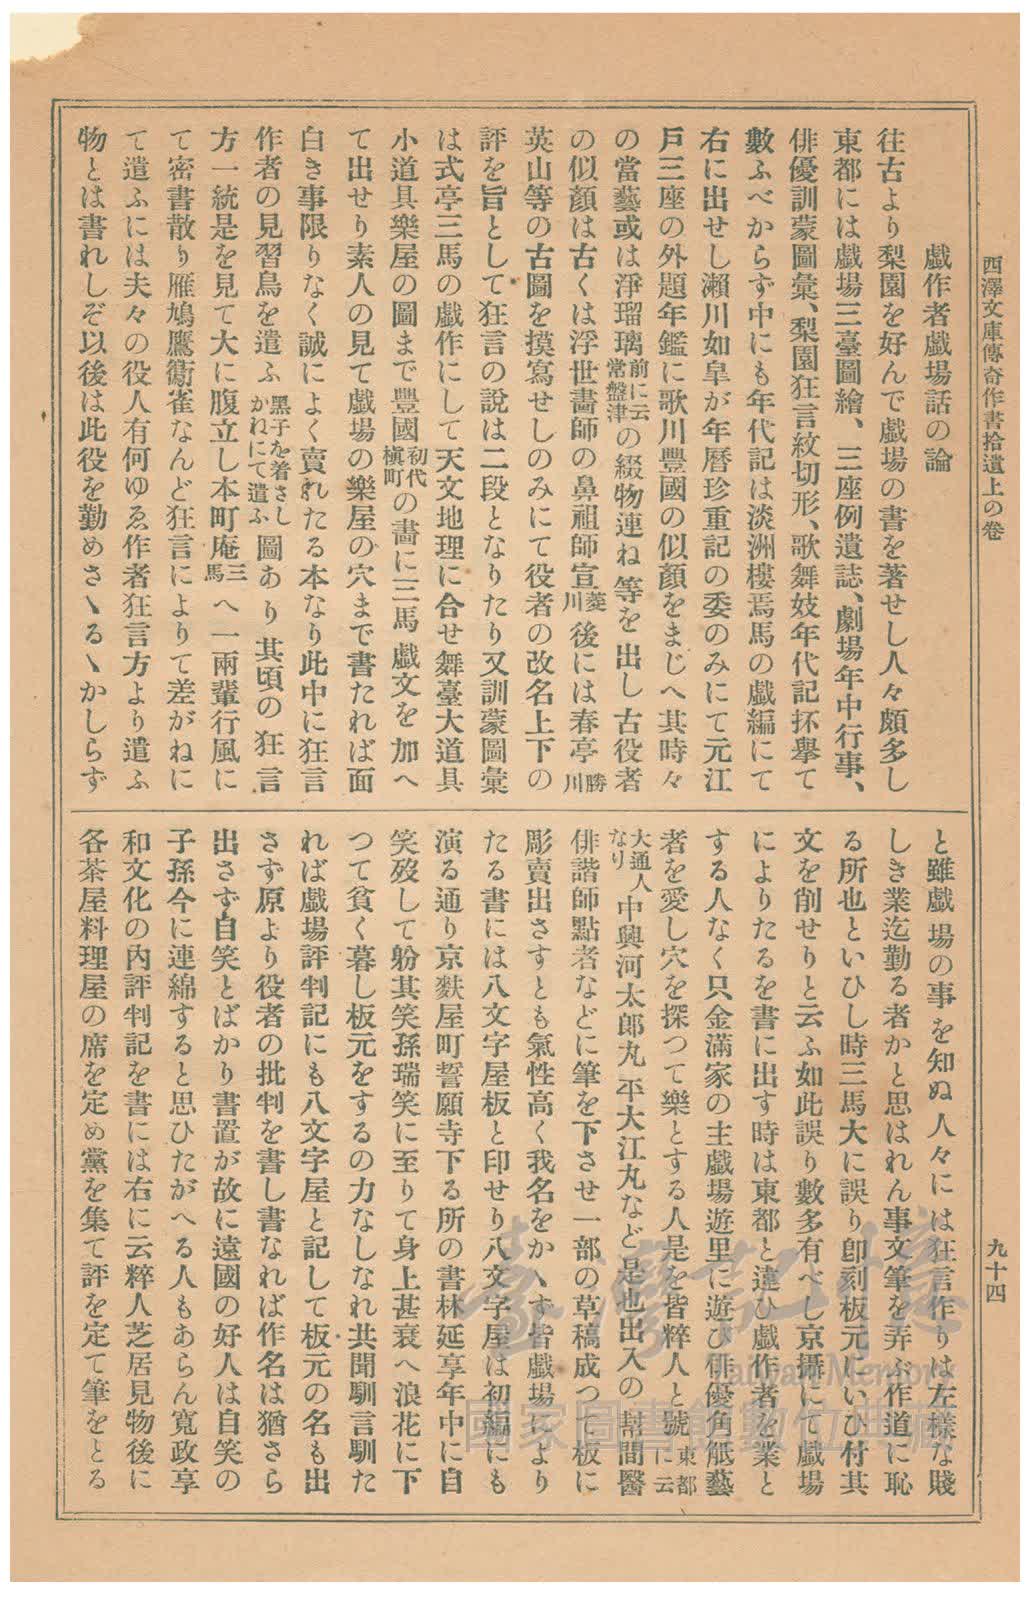 西澤文庫傳奇作書拾遺上の卷
九十四
戲作者戲場話の論
往古より梨園を好んで戲場の書を著せし人々頗多し
東都には戲場三臺圖繪、三座例遺誌、劇場年中行事、
俳優訓蒙圖彙、梨園狂言紋切形、歌舞妓年代記抔擧て
數ふべからず中にも年代記は淡洲樓焉馬の戲編にて
右に出せし瀨川如皐が年曆珍重記の委のみにて元江
戶三座の外題年鑑に歌川豐國の似顏をまじへ其時々
の當藝或は淨瑠璃前に云常盤津の綴物連ね等を出し古役者
の似顏は古くは浮世畵師の鼻祖師宣菱川後には春亭勝川
英山等の古圖を摸寫せしのみにて役者の改名上下の
評を旨として狂言の說は二段となりたり又訓蒙圖彙
は式亭三馬の戲作にして天文地理に合せ舞臺大道具
小道具樂屋の圖まで豐國初代槇町の畵に三馬戲文を加へ
て出せり素人の見て戲場の樂屋の穴まで書たれば面
白き事限りなく誠によく賣れたる本なり此中に狂言
作者の見習鳥を遣ふ黑子を着さしかねにて遣ふ圖あり其頃の狂言
方一統是を見て大に腹立し本町庵三馬へ一兩輩行風に
て密書散り雁鳩鷹鵆雀なんど狂言によりて差がねに
て遣ふには夫々の役人有何ゆゑ作者狂言方より遣ふ
物とは書れしぞ以後は此役を勤めさゝるゝかしらず
と雖戲場の事を知ぬ人々には狂言作りは左樣な賤
しき業迄勤る者かと思はれん事文筆を弄ぶ作道に恥
る所也といひし時三馬大に誤り卽刻板元にいひ付其
文を削せりと云ふ如此誤り數多有べし京攝にて戲場
によりたるを書に出す時は東都と違ひ戲作者を業と
する人なく只金滿家の主戲場遊里に遊び俳優角觝藝
者を愛し穴を探つて樂とする人是を皆粹人と號東都に云
大通人なり中興河太郎丸平大江丸など是也出入の幇間醫
俳諧師點者などに筆を下させ一部の草稿成つて板に
彫賣出さすとも氣性高く我名をかゝず皆戲場により
たる書には八文字屋板と印せり八文字屋は初編にも
演る通り京麩屋町誓願寺下る所の書林延享年中に自
笑歿して躮其笑孫瑞笑に至りて身上甚衰へ浪花に下
つて貧く暮し板元をするの力なしなれ共聞馴言馴た
れば戲場評判記にも八文字屋と記して板元の名も出
さず原より役者の批判を書し書なれば作名は猶さら
出さず自笑とばかり書置が故に遠國の好人は自笑の
子孫今に連綿すると思ひたがへる人もあらん寬政享
和文化の內評判記を書には右に云粹人芝居見物後に
各茶屋料理屋の席を定め黨を集て評を定て筆をとる
臺灣記憶
Taiwan Memory
國家圖書館數位典藏